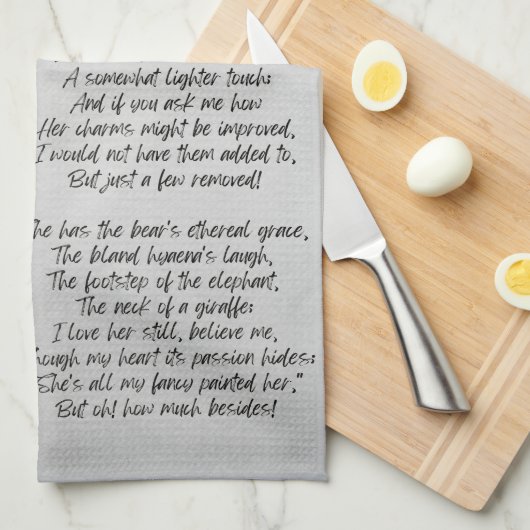 A somewhat lighter touch:
And if you ask me how
Her charms might be improved,
I would not have them added to,
But just a few removed!
he has the bear's ethereal grace,
The bland hyaena's laugh,
The footstep of the elephant,
The neck of a giraffe:
I love her still, believe me,
hough my heart its passion hides:
She's all my fancy painted her,"
But oh! how much besides!